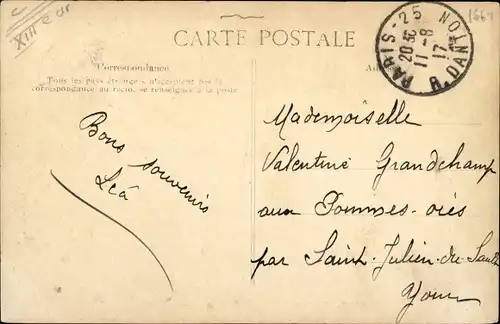 XIIIe ar
1664
CARTE POSTALE
PARIS-25
R. DANTON
20 30
11-8
17
Correspondance
Tous les pays étrangers n'acceptent pas la
correspondance au recto, se renseigner à la poste
Bons souvenirs
Léa
Mademoiselle
Valentine Grandchamp
aux
par Saint-Julien-du-Sault
Yonne